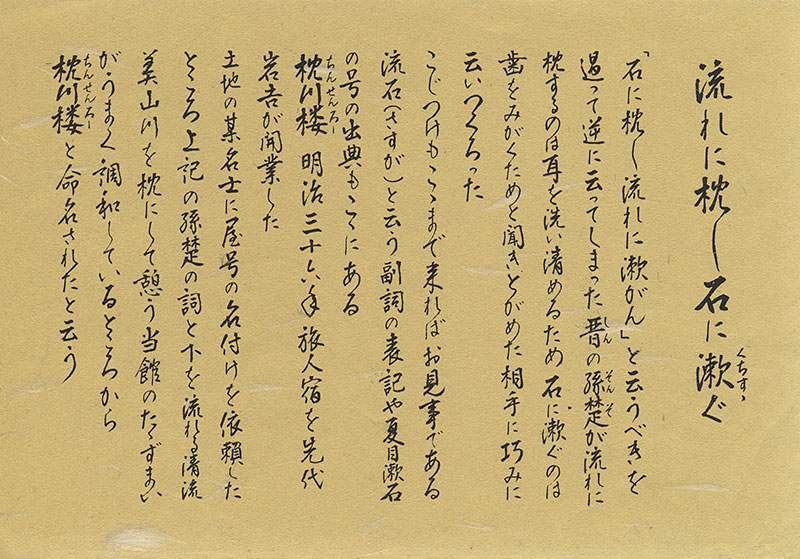 流れに枕し石に漱ぐ
くちすゝ
「石に枕し流れに漱がん」と云うべきを
過って逆に云ってしまった晋の孫楚が流れに
しん
そんそ
枕するのは耳を洗い清めるため 石に漱ぐのは
歯をみがくためと聞きとがめた相手に巧みに
云いつくろった
こじつけもこゝまで来ればお見事である
流石(さすが)と云う副詞の表記や夏目漱石
の号の出典もここにある
枕川楼 明治三十六年 旅人宿を先代
ちんせんろー
岩吉が開業した
土地の某名士に屋号の名付けを依頼した
ところ上記の孫楚の詞と下を流れる清流
美山川を枕にして憩う当館のたゝずまい
がうまく調和しているところから
枕川楼と命名されたと云う
ちんせんろー